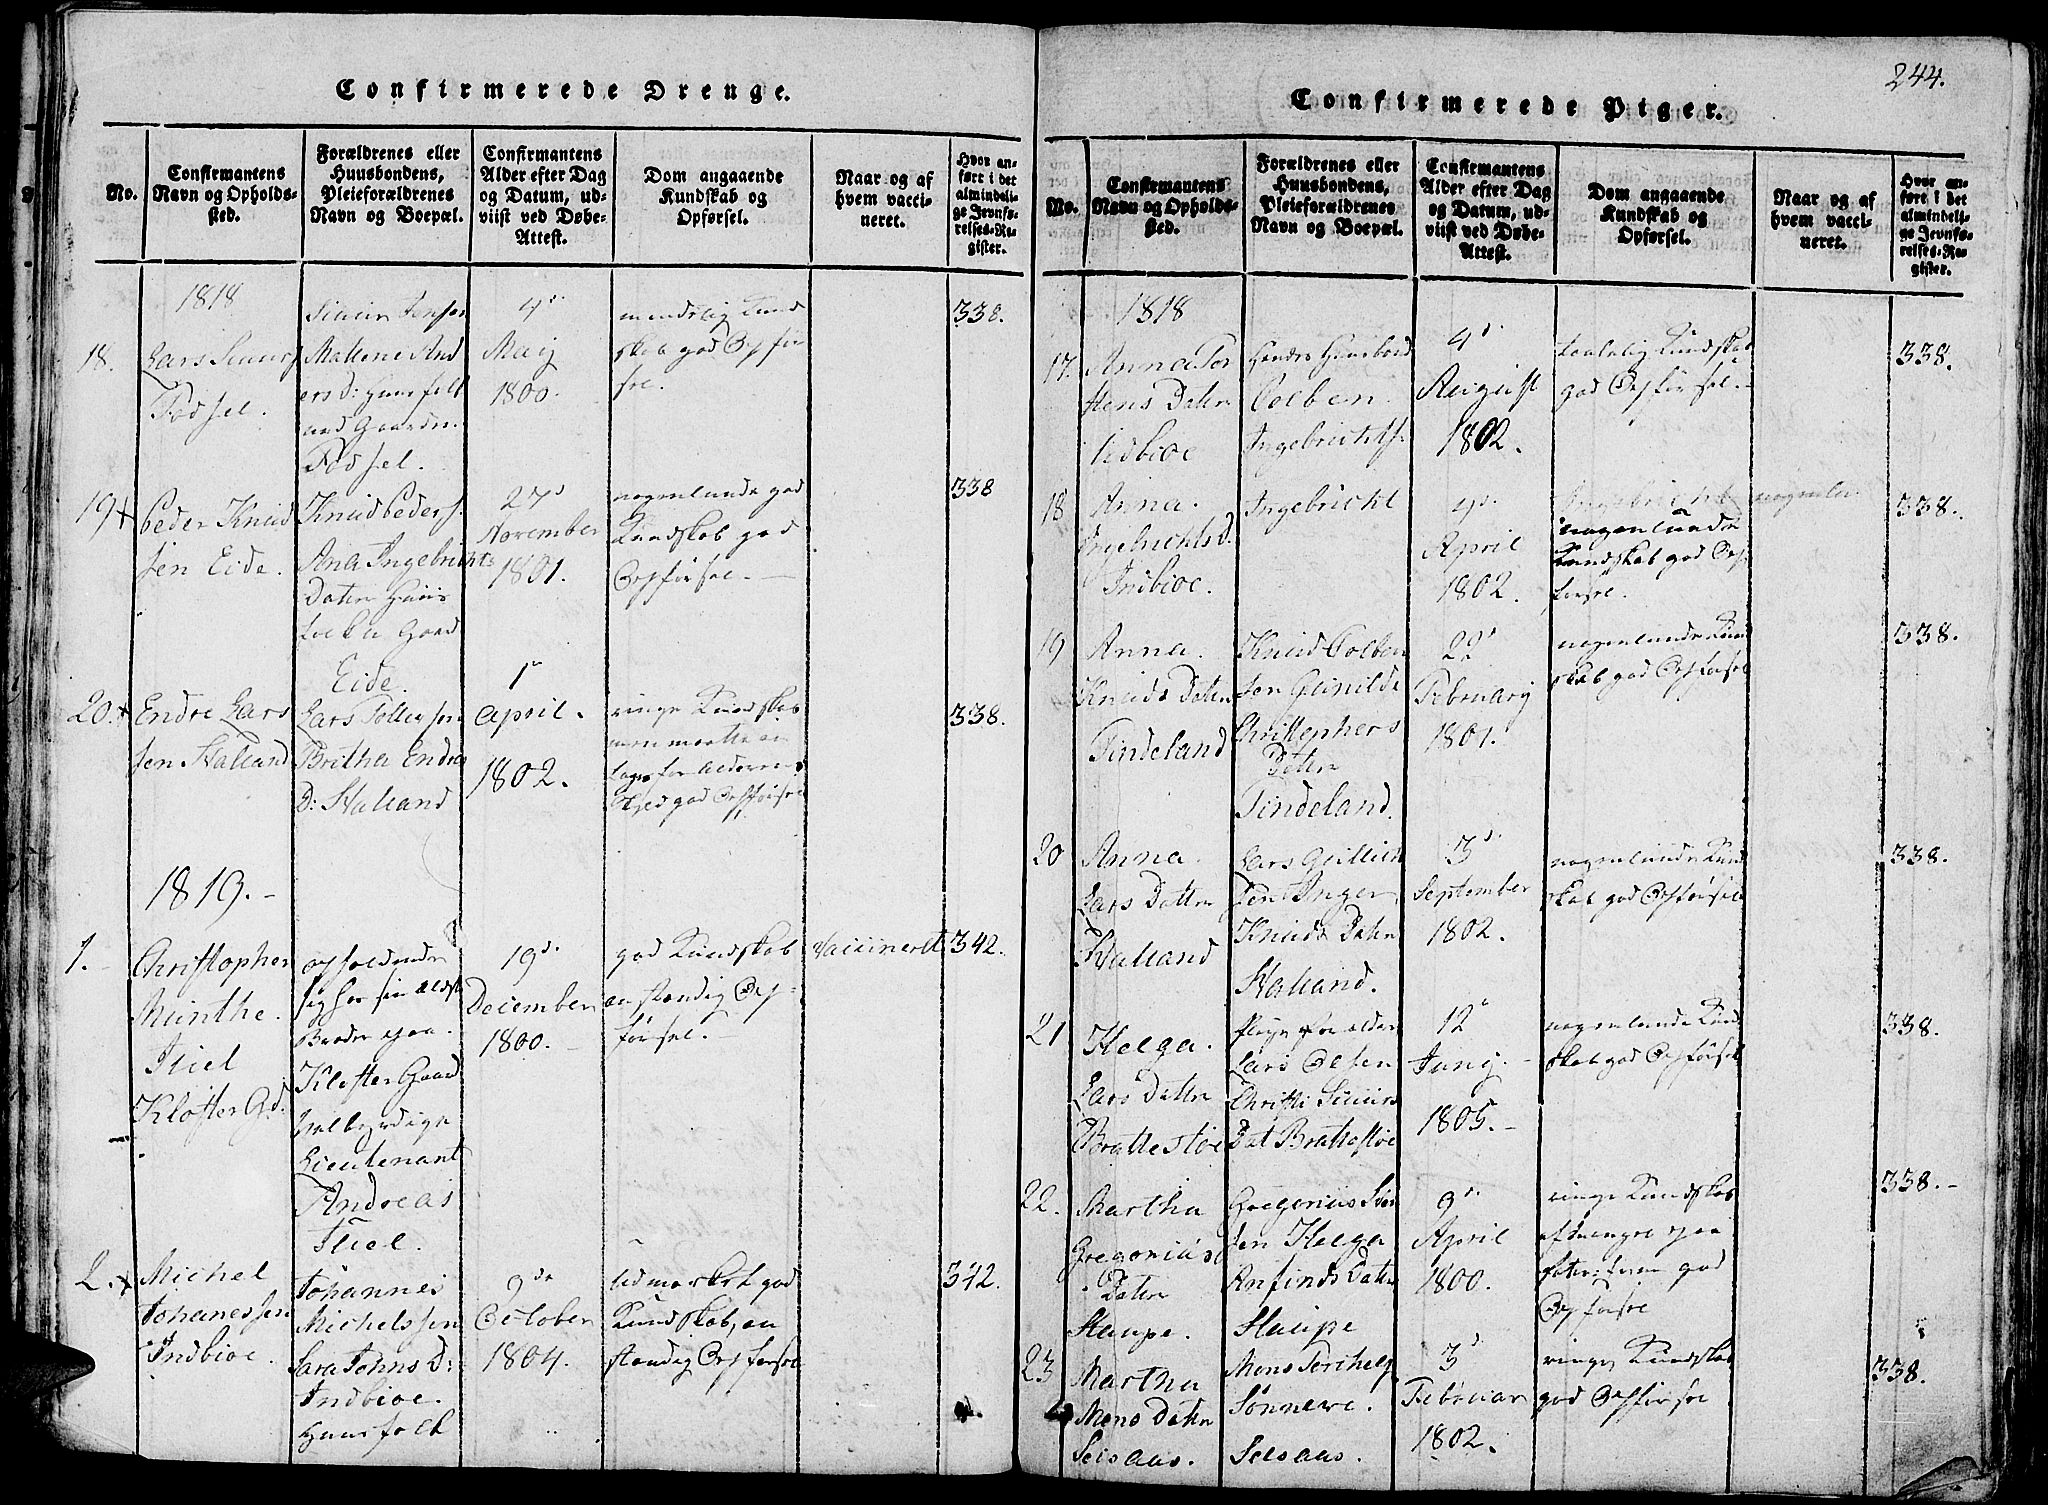 Confirmerede Drenge.
No.
Confirmantens
Navn og Opholds-
sted.
Forældrenes eller
Huusbondens,
Pleieforældrenes
Navn og Boepæl.
Confirmantens
Alder efter Dag
og Datum, ud-
viist ved Døbe-
Attest.
Dom angaaende
Kundskab og
Opførsel.
Naar og af
hvem vacci-
neret.
Hvor an-
ført i det
almindeli-
ge Jevnfø-
relses-Re-
gister.
1818
18.
Lars Siurs
Födsel.
Siur Jensen
Mallene And
ers D: Huusfolk
Gaarden
Födsel.
4de
May
1800.
maadelig Kund
skab god Opför
sel.
338.
19 +
Peder Knud
sen Eide.
Knud Peders.
Ana Ingebrichts
Datter Huus
folk Gaard
Eide.
27d
November
1801.
nogenlunde god
Kundskab god
Opförsel. —
338
20. +
Endre Lars
sen Halland
Lars Tollefsen
Britha Endre
D: Halland
1e
April.
1802.
ringe Kundskab
men maatte an
tages for Alderens
Skyld god Opförsel
338.
1819. -
1. -
Christopher
Münthe.
Thiel
Kloster Gd.
opholdende
sig hos sin ældste
Broder paa
Kloster Gaard
velbyrdige
Lieutenant
Andreas
Thiel.
19de
December
1800. -
god Kundskab
anstændig Op-
försel. -
Vaccineret
342.
2. +
Michel
Johanessen
Indbioe.
Johannes
Michelssen
Sara Johns D:
Indbioe.
Huusfolk
9de
October
1804.
Udmærket god
Kundskab, an
stændig Opförsel
342.
244.
Confirmerede Piger.
No.
Confirmantens
Navn og Opholds-
sted.
Forældrenes eller
Huusbondens,
Pleieforældrenes
Navn og Boepæl.
Confirmantens
Alder efter Dag
og Datum, ud-
viist ved Døbe-
Attest.
Dom angaaende
Kundskab og
Opførsel.
Naar og af
hvem vacci-
neret.
Hvor an-
ført i det
almindeli-
ge Jevnfø-
relses-Re-
gister.
1818
17.
Anna Tor
stens Datter
Indbioe
Hendes Huusbond
Colben
Ingebrichts.
4d.
August
1802.
taalelig Kundskab
god Opförsel. -
338.
18
Anna.
Ingebrichts D.
Indbioe.
Ingebricht
4d.
April
1802.
Ingebricht
nogenlunde
Kundskab god Op
försel.
nogenlu
338.
19
Anna.
Knuds Datter
Tindeland
Knud Colben
sen Gunilde
Christophers
Datter
Tindeland.
22d
February
1801.
nogenlunde Kund
skab god Opförsel
338.
20
Anna.
Lars Datter
Halland
Lars Gullich
sen Inger
Knuds Datter
Halland.
3d.
September
1802.
nogenlunde Kund
skab god Opförsel
338.
21
Helga.
Lars Datter
Brattestöe
Pleyeforældre
Lars Olsen
Christi Siurs
Dat Brattestöe
12e
Juny. -
1805. -
nogenlunde Kund
skab god Opförsel
338.
22.
Martha
Gregoriuse
Datter
Staupe.
Gregorius Iver
sen Helga
Anfinds Datter
Staupe
9de
April
1800.
ringe Kundskab
god
Opförsel
338. -
23
Martha
Mons Datter
Selsaas.
Mons Torchels
Sönneve.
Selsaas.
3d
Februar
1802.
ringe Kundskab
god Opförsel
338.